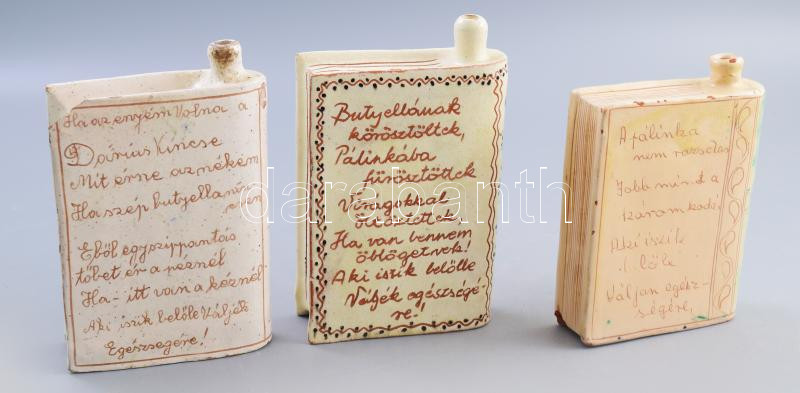 Ha az enyém Volna a
Dárius Kincse
Mit érne az nékem
Ha szép butyellám
Eből egy szippantás
többet ér a pénznél
Ha itt van a kéznél
Aki iszik belőle Váljék
Egészségére!
Butyellának
körösztöltek,
Pálinkába
fürösztöttek
Virágokkal
öltöztettek,
Ha van bennem
öblögetnek!
Aki iszik belőlle
Váljék egészségé-
re!
A pálinka
nem rossolas
Jobb mint a
száraz
Aki iszik
Váljan egész-
ségére,
darabanth